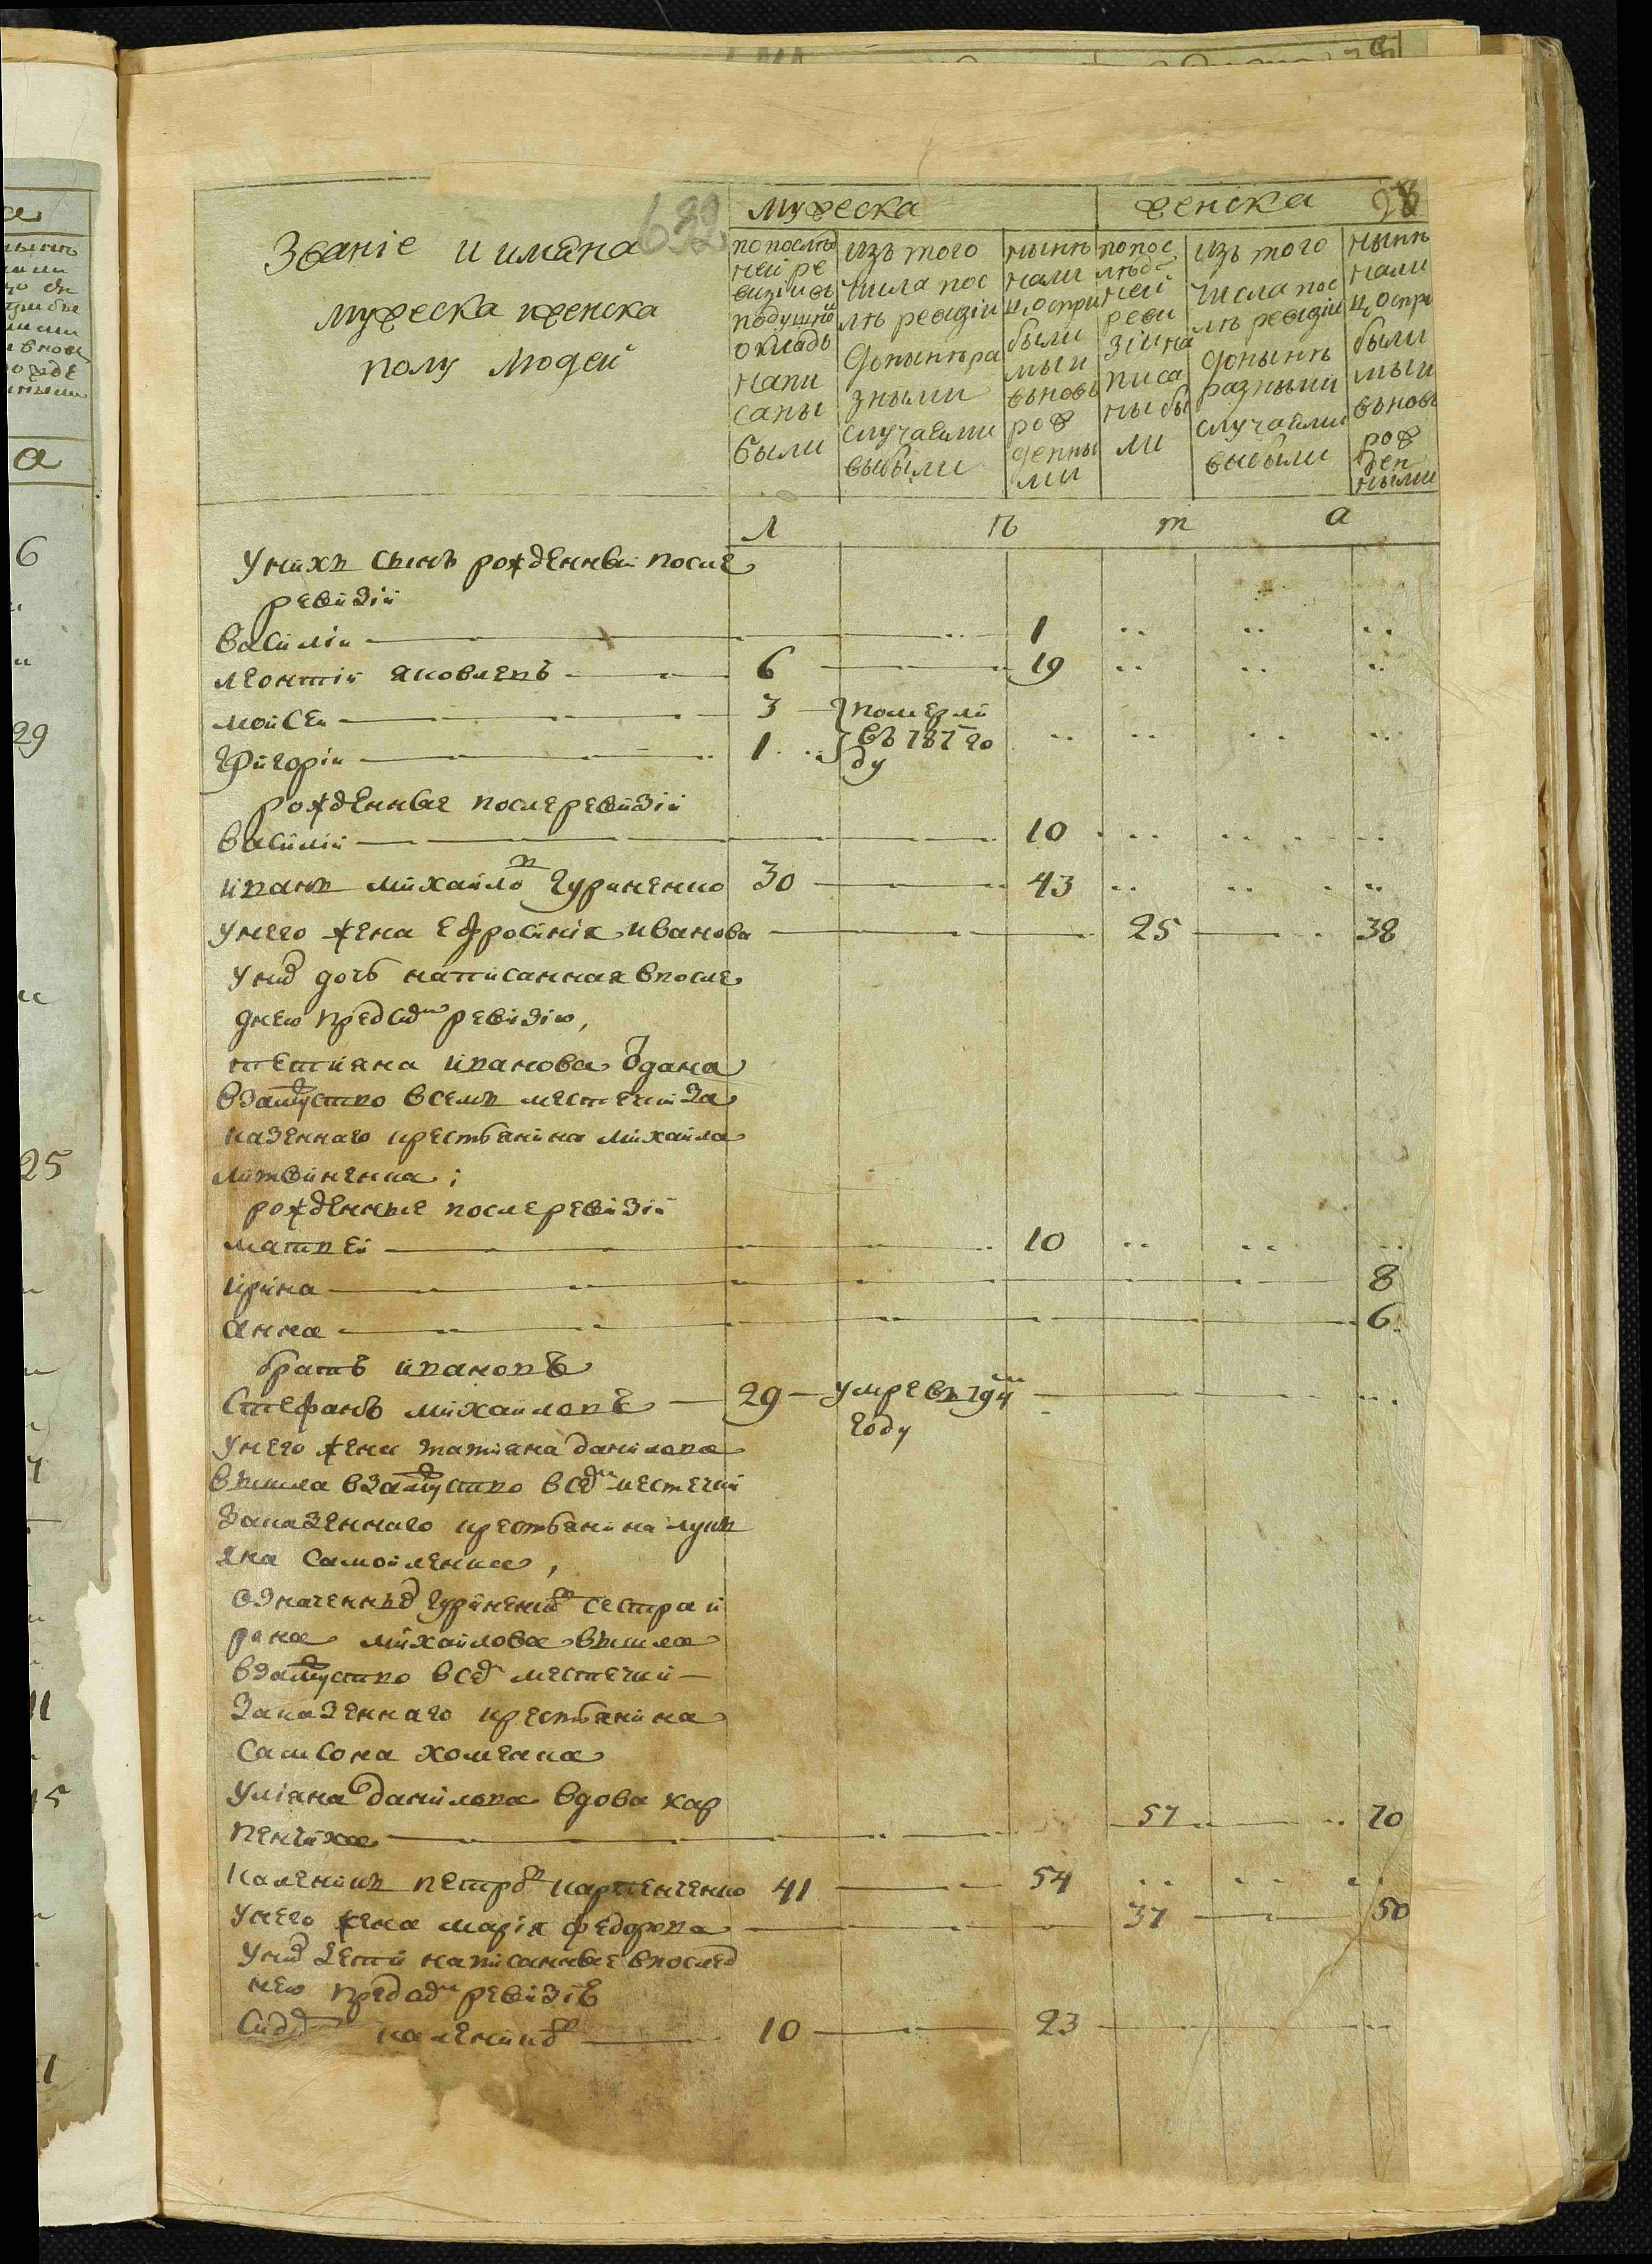 632
28
Званіе и имяна
мужеска и женска
полу людей
мужеска женска
по послѣд
ней ре
визіи въ
подушной
окладъ
напи
саны
были
изъ того
числа пос
лѣ ревизіи
до нынѣ ра
зными
случаями
выбыли
нынѣ
нали
ц. о с при
были
мы и
вьновь
рож
денны
ми
по пос
лѣд
ней
реви
зіи на
писа
ны бы
ли
изъ того
числа пос
лѣ ревизіи
до нынѣ
разными
случаями
выбыли
нынѣ
нали
ц. о с при
были
мы и
вьновь
рож
ден
ными
л ѣ т а
У нихъ сынъ рожденный после
ревизіи
Василіи 1
леонтіи яковлевъ 6 19
мойсеи 3 померли
Григоріи 1 въ 787 го
ду
рожденные после ревизіи
Василіи 10
иванъ михайловъ Гуриненко 30 43
у него жена Ефросинія иванова 25 38
у них дочь написанная в после
днею пред сим ревизію,
тетияна иванова одана
взамуство в семъ местечки за
казеннаго крестьянина михайла
литвиненка;
рожденные после ревизіи
матвеи 10
ирина 8
анна 6
братъ ивановъ
Стефанъ михайловъ 29 умре въ 794м
году
у него жена татияна данилова
вышла взамуство в сем местечки
за казеннаго крестьянина лукь
яна самойленка,
означенных Гуриненков сестра и
рина михайлова вышла
взамуство в сем местечки
за казеннаго крестьянина
самсона хоменка
уліяна данилова вдова кар
пенчиха 57 70
каленикъ петровъ карпенченко 41 54
у него жена марія федорова 37 50
у них дети написанные в послед
нею пред сим ревизіѣ
калениковъ 10 23